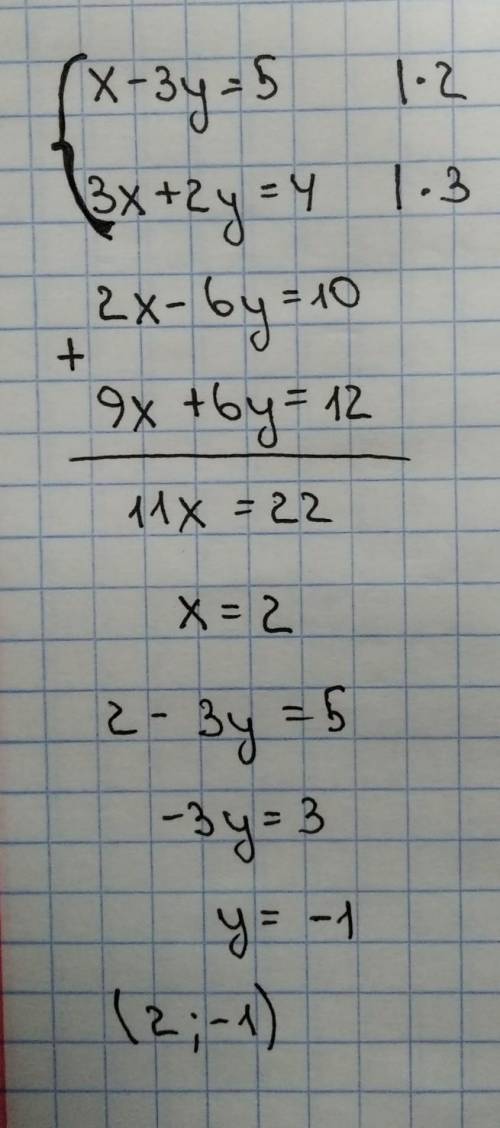 x - 3y = 5 | · 2
3x + 2y = 4 | · 3
2x - 6y = 10
+
9x + 6y = 12
11x = 22
x = 2
2 - 3y = 5
-3y = 3
y = -1
(2; -1)